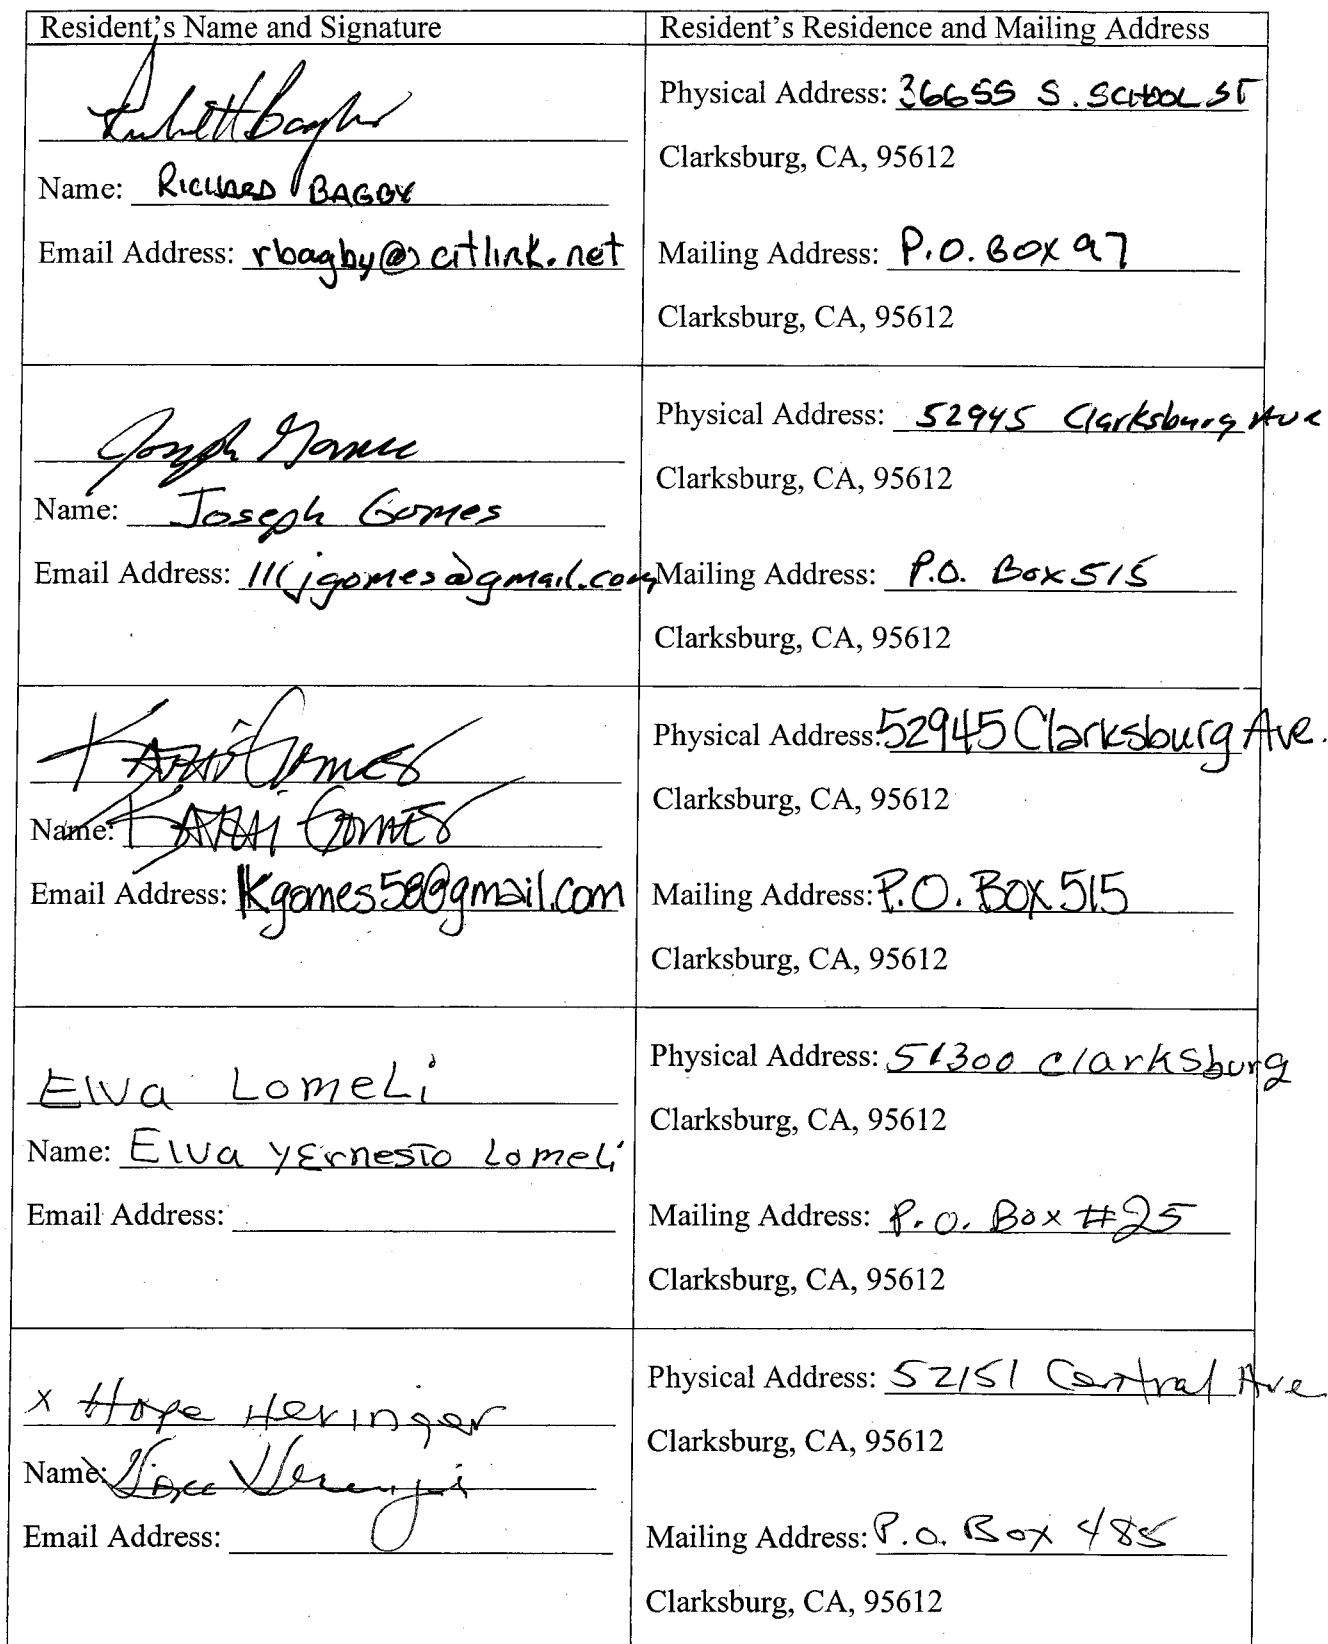 Resident's Name and Signature
Resident's Residence and Mailing Address
Name: RICHARD BAGBY
Email Address: rbagby@citlink.net
Physical Address: 36655 S. SCHOOL ST
Clarksburg, CA, 95612
Mailing Address: P.O. BOX 97
Clarksburg, CA, 95612
Joseph Gomes
Name: Joseph Gomes
Email Address: 111jgomes@gmail.com
Physical Address: 52945 Clarksburg Ave
Clarksburg, CA, 95612
Mailing Address: P.O. Box 515
Clarksburg, CA, 95612
Gomes
Name: Gomes
Email Address: Kgomes58@gmail.com
Physical Address: 52945 Clarksburg Ave.
Clarksburg, CA, 95612
Mailing Address: P.O. BOX 515
Clarksburg, CA, 95612
Elva Lomeli
Name: Elva y Ernesto Lomeli
Email Address:
Physical Address: 51300 Clarksburg
Clarksburg, CA, 95612
Mailing Address: P.O. Box #25
Clarksburg, CA, 95612
x Hope Heringer
Name: Hope Heringer
Email Address:
Physical Address: 52151 Central Ave
Clarksburg, CA, 95612
Mailing Address: P.O. Box 485
Clarksburg, CA, 95612